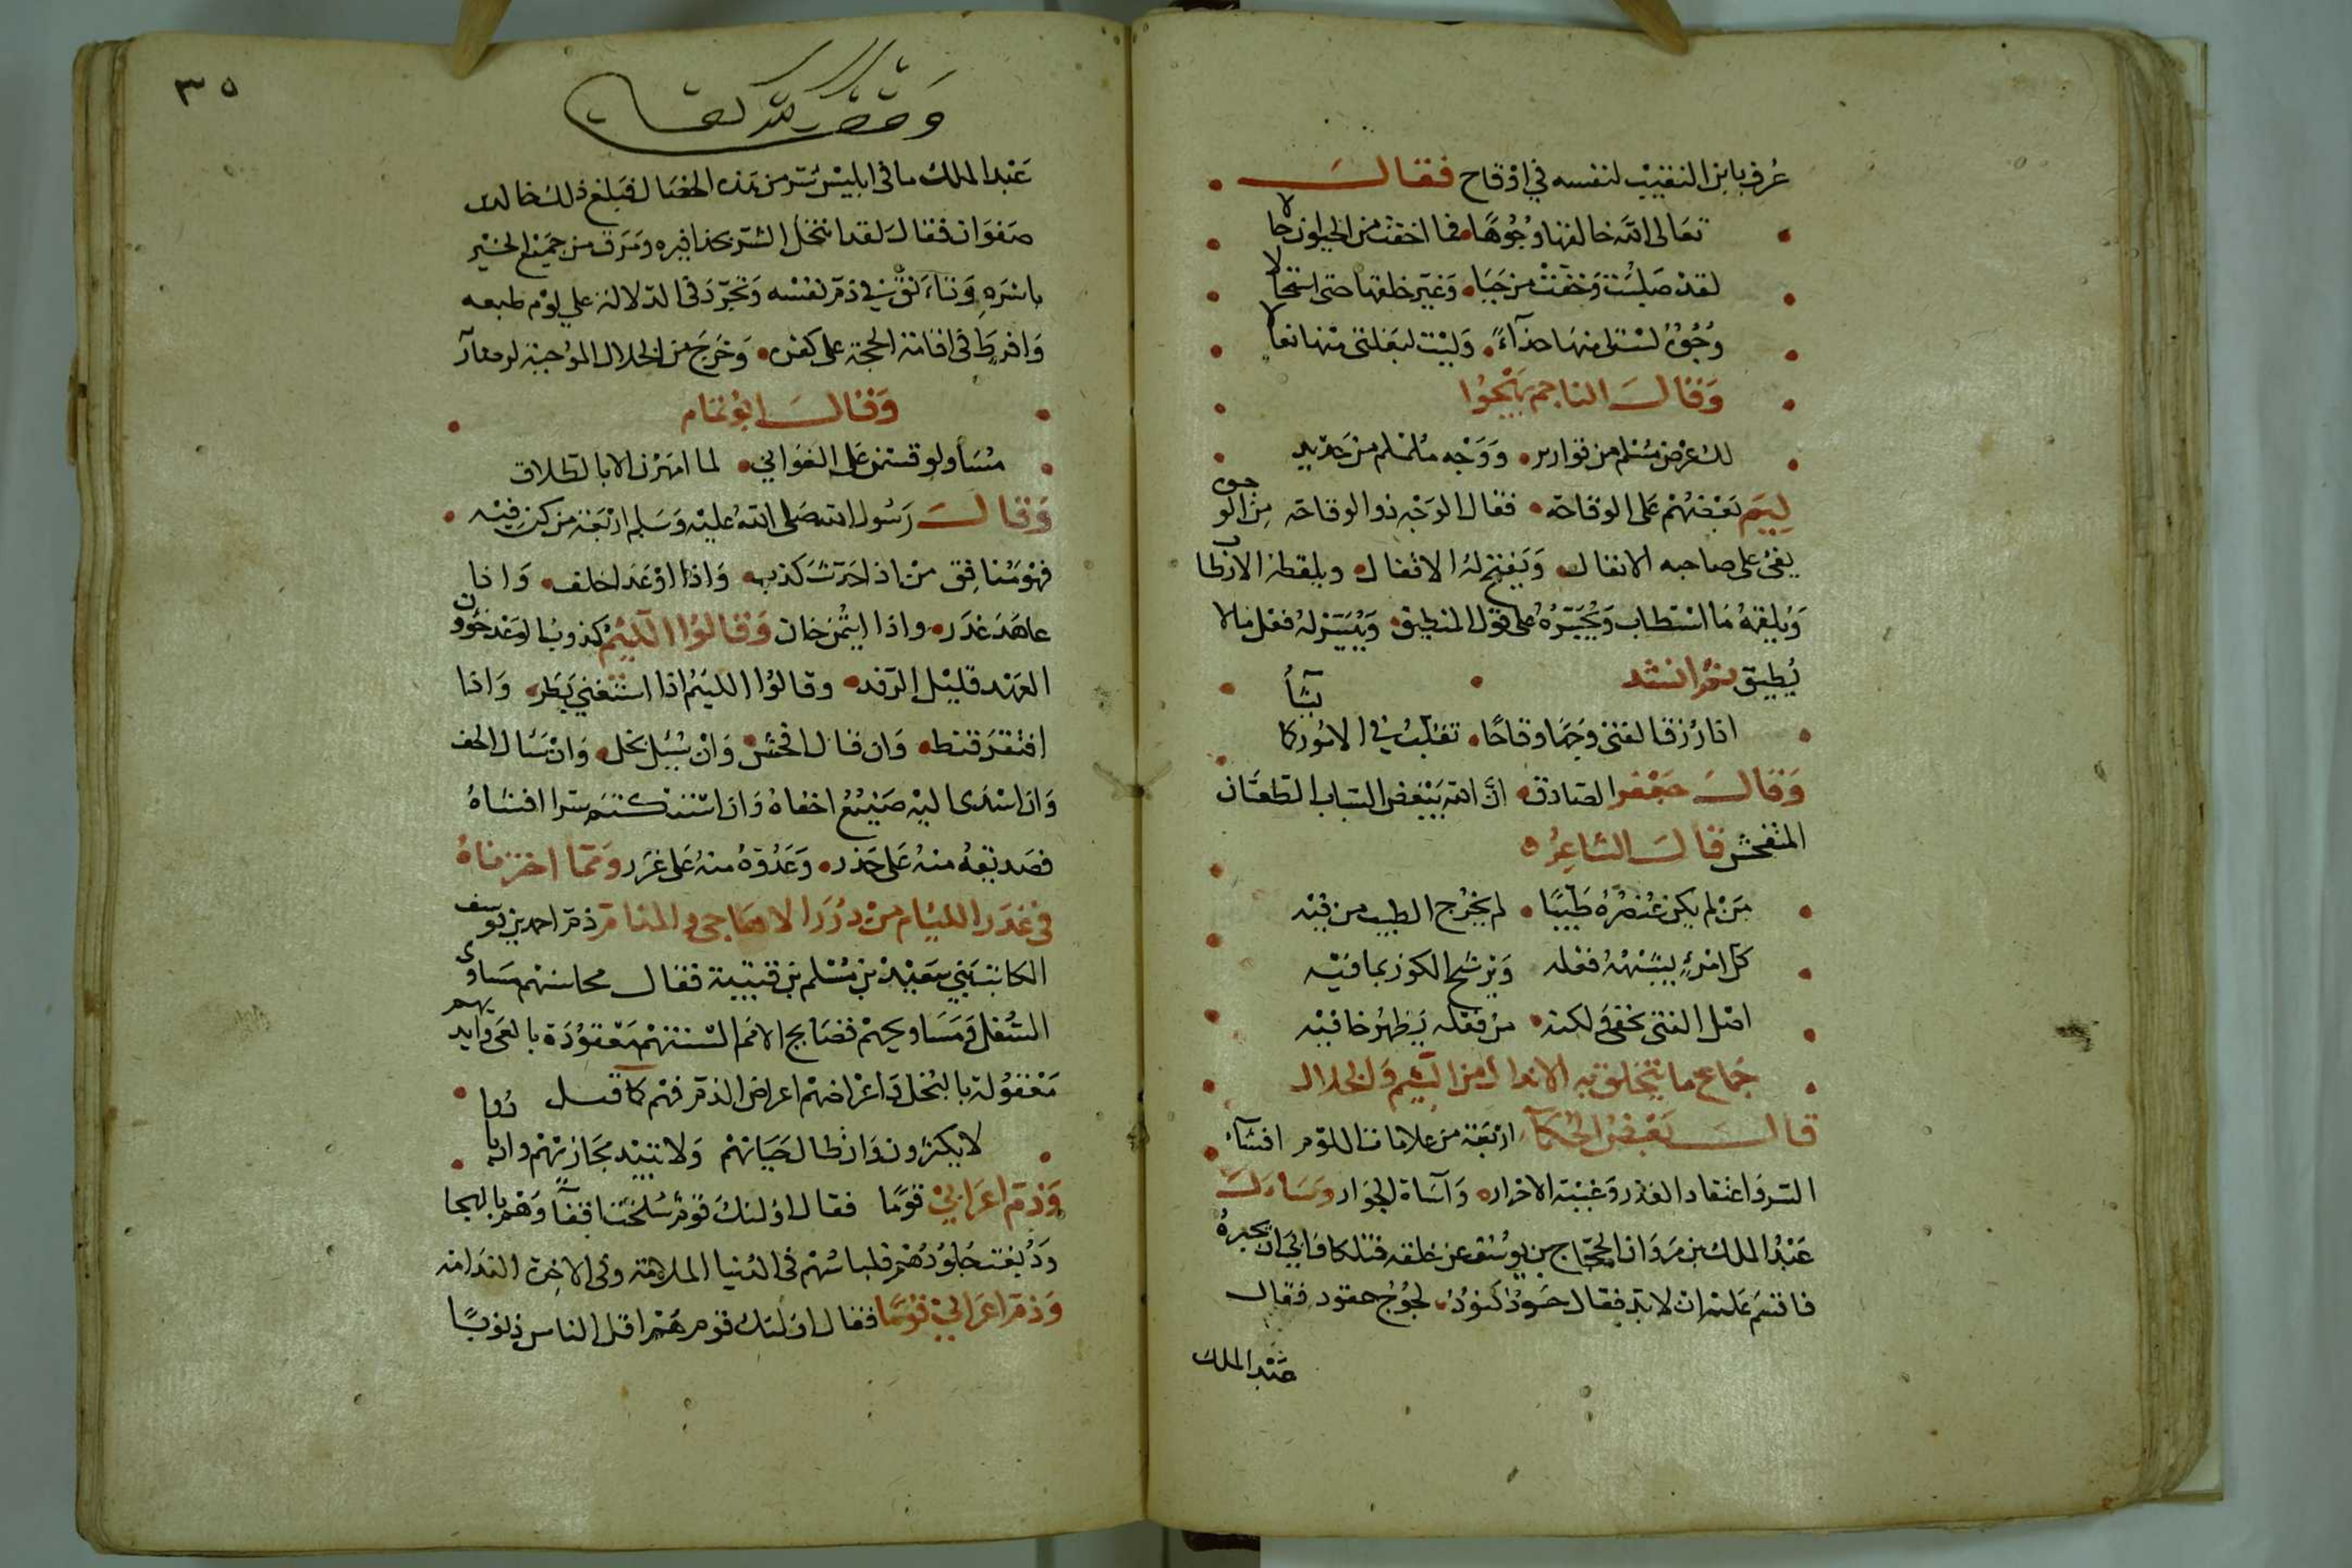 عُرف بابن النقيب لنفسه في اوقاح فقال
تعالى الله خالقها وجُوهًا فما اخفت من الحيوان جا
لا
لقد صلبت وخفت من حيا وغير خلقها حتى استحا
لا
وجُوهٌ لستلى منها حذاءً وليت لبغلتى منها نعا
لا
وقال الناجم يهجوا
لك عرض مثلم من قوارير ووجه ململم من حديد
ليم بعضهم على الوقاحة فقال الوجه ذو الوقاحة من الو
جوه
يفئ على صاحبه الانفال ويفتح له الاقفال ويلقطه الارطا
ب
ويلقمه ما استطاب ويجسّره على قول المنطيق وييسّر له فعل مالا
يُطيق ثم انشد
اذا رُزق الفتى وجهًا وقاحًا تقلّب في الامور كا
يشأ
وقال جعفر الصادق ان الله يبغض السباب الطعّان
المتفحش قال الشاعر
من لم يكن عنصره طيّبًا لم يخرج الطيب من فيه
كل امرءٍ يشبهه فعله ويرشح الكوز بما فيه
اصل الفتى يخفى ولكنه من فعله يظهر خافيه
جماع ما يتخلق به الانذال من الشيم والخلال
قال بعض الحكمآ اربعة من علامات اللوم افشآء
السر واعتقاد الغدر وغيبة الاحرار وآساة الجوار وسأل
عبد الملك بن مروان الحجاج بن يوسف عن خلقه فتلكا فابى ان يخبره
فاقسم عليه ان لا بد فقال حسود كنود لجوج حقود فقال
عبد الملك
٣٥
وقف لله تعالى
عبد الملك ما في ابليس شر من هذه الخصال فبلغ ذلك خالد بن
صفوان فقال لقد انتحل الشر بحذافيره ومرق من جميع الخير
باسره وتأنق في ذم نفسه وتجرد في الدلالة على لوم طبعه
وافرط في اقامة الحجة على كفره وخرج من الخلال الموجبة لرضا
وقال ابو تمام
مساو لو قسمن على الغواني لما امهرن الا بالطلاق
وقال رسول الله صلى الله عليه وسلم اربعة من كن فيه
فهو منافق من اذا حدث كذب واذا اوعد اخلف واذا
عاهد غدر واذا ايتمن خان وقالوا اللئيم كذوب الوعد خوو
ن
العهد قليل الرفد وقالوا اللئيم اذا استغنى بطر واذا
افتقر قنط وان قال افحش وان سُئل بخل وان سأل الحف
وان اسدى اليه صنيع اخفاه وان استكتم سرا افشاهُ
فصديقه منه على حذر وعدوه منه على غرر ومما اخترناه
في غدر اللئام من درر الاهاجى والمذام ذم احمد بن يو
سف
الكاتب بني سعيد بن مسلم بن قتيبة فقال محاسنهم مساوى
السفل ومساويهم فضايح الامم السنتهم معقودة بالعى وايد
يهم
معقولة بالبخل واعراضهم اعراض الذم فهم كما قيل
لا يكثرون وان طالت حياتهم ولا تبيد مخازيهم وان با
دوا
وذم اعرابي قومًا فقال اولئك قوم سلخت اقفآوهم بالهجا
ودُبغت جلودهم فلباسهم في الدنيا الملامة وفي الاخرة الندامة
وذم اعرابي قومًا فقال اولئك قوم هم اقل الناس ذنوبًا